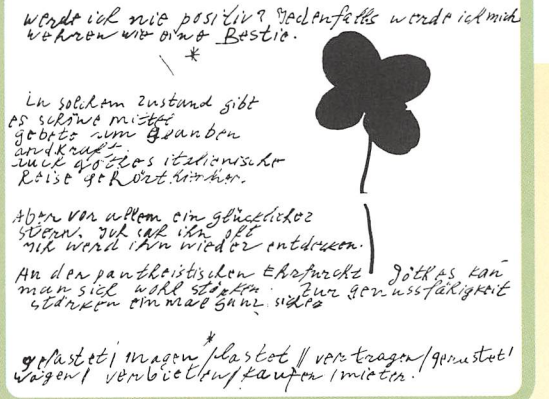 werde ich nie positiv? Jedenfalls werde ich mich
wehren wie eine Bestie.
*
in solchem Zustand gibt
es schöne mittel
gebete um Glauben
and Kraft
auch göttes italienische
Reise gehört hierher.
Aber vor allem ein glücklicher
Stern. Ich sah ihn oft
ich werd ihn wieder entdecken.
An den pantheistischen Ehrfurcht göthes kan
man sich wohl stärken. Zur genussfähigkeit
stärken einmal ganz sicher
*
gefastet/ magen/ plastet // vertragen/gerustet/
wagen/ verbieten/kaufen/mieten.